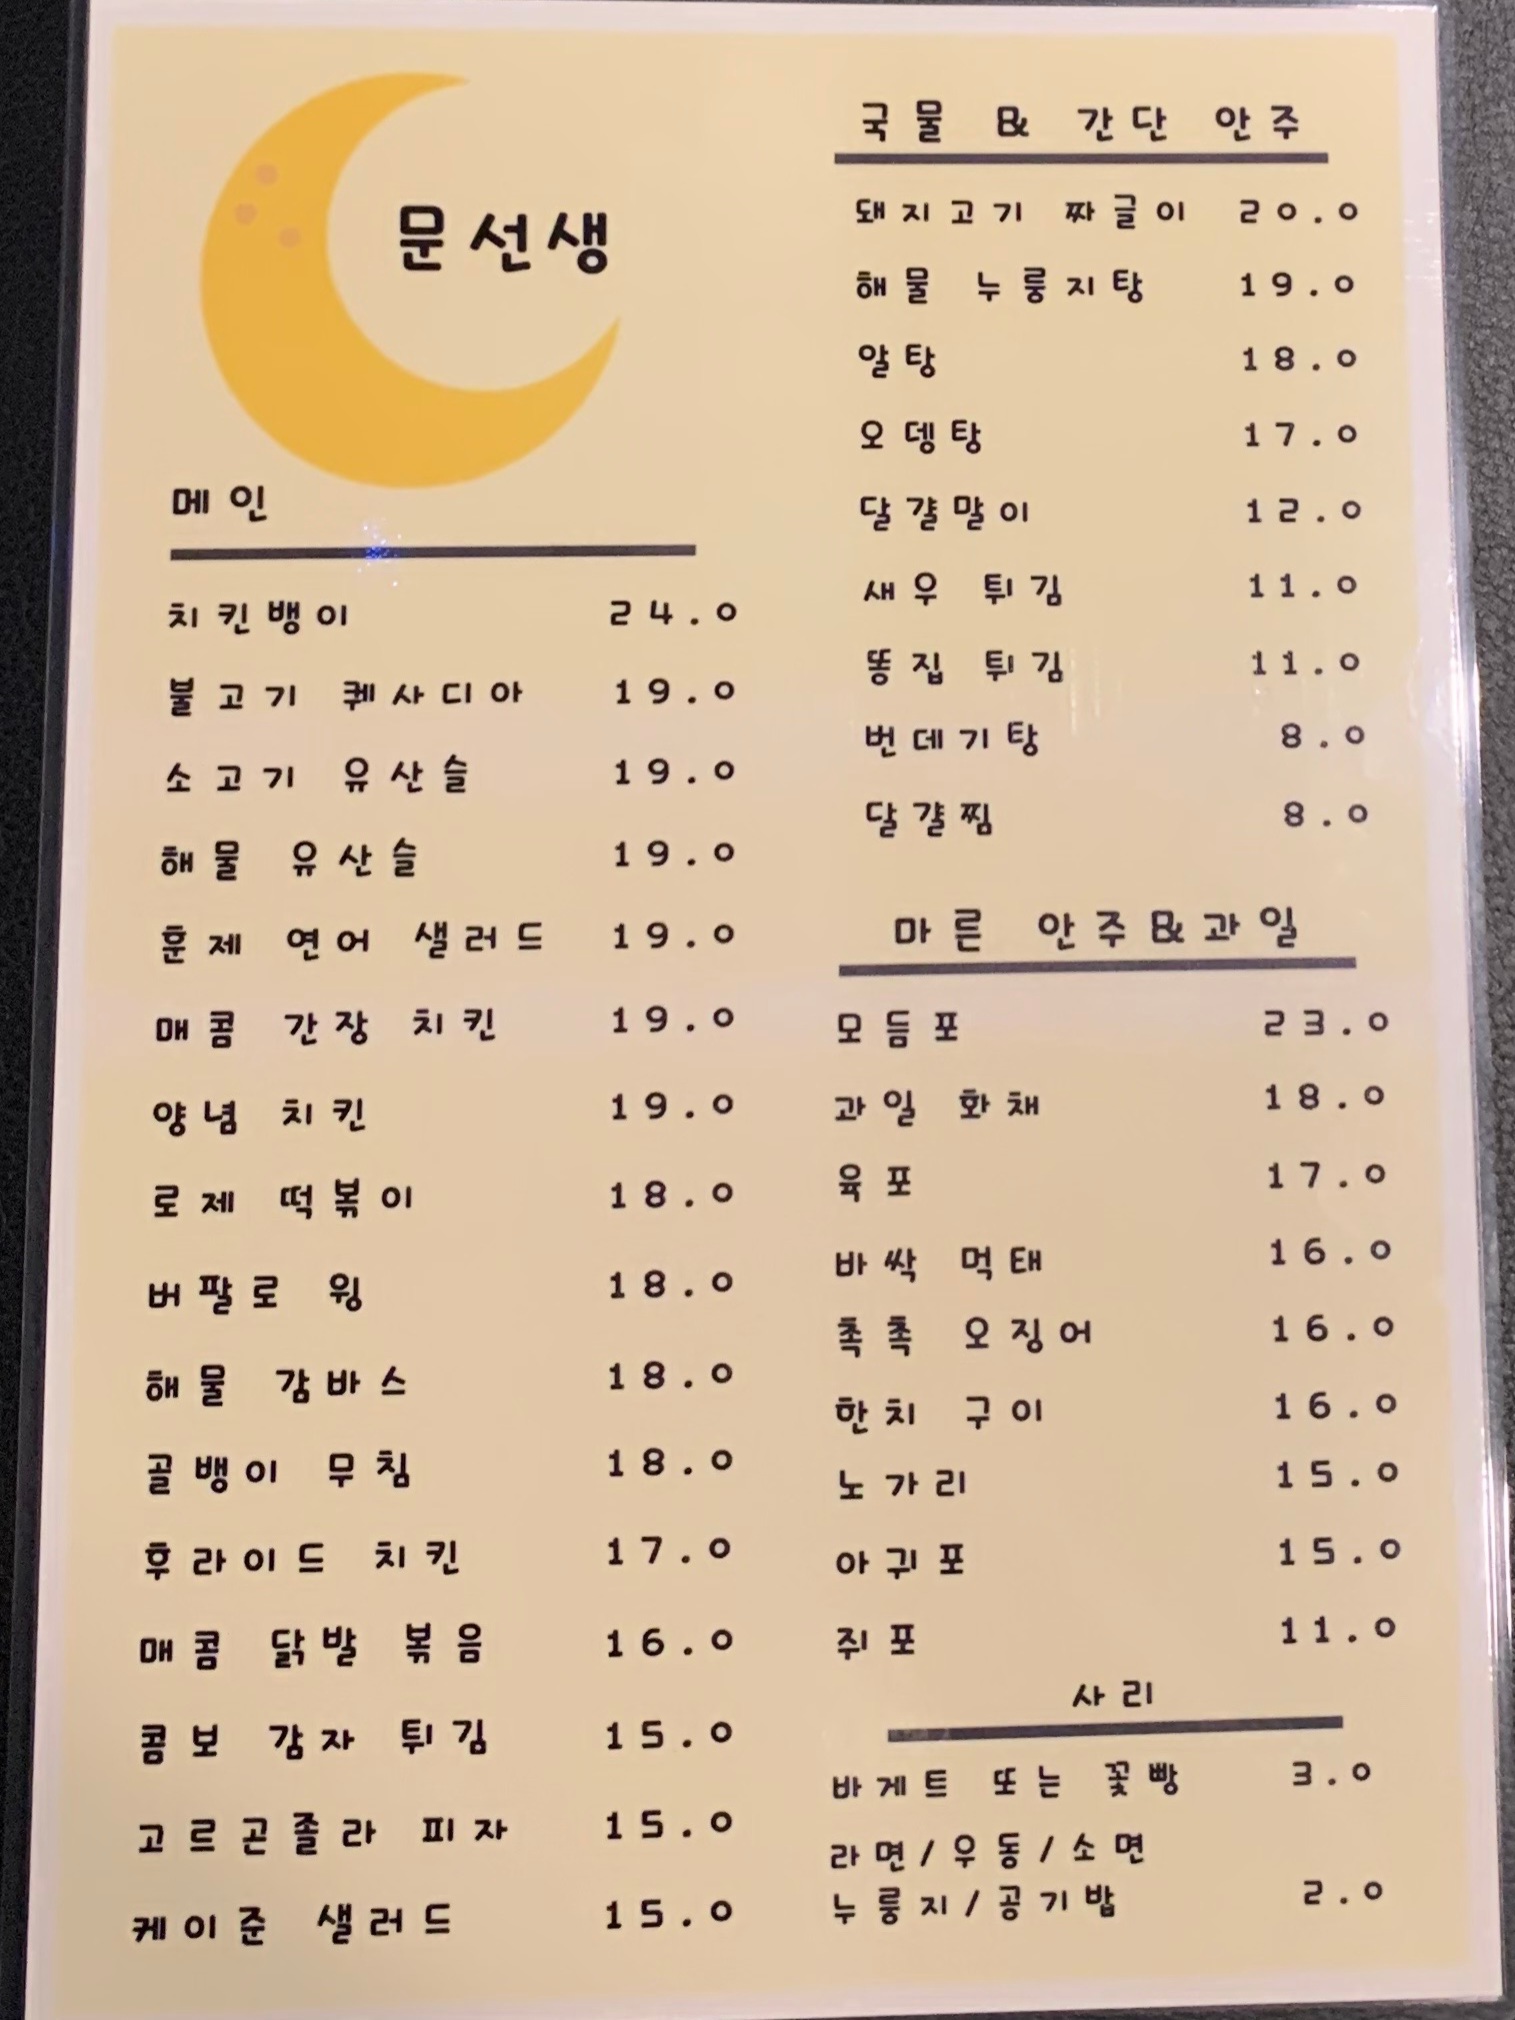 문선생
메인
치킨뱅이 24.0
불고기 퀘사디아 19.0
소고기 유산슬 19.0
해물 유산슬 19.0
훈제 연어 샐러드 19.0
매콤 간장 치킨 19.0
양념 치킨 19.0
로제 떡볶이 18.0
버팔로 윙 18.0
해물 감바스 18.0
골뱅이 무침 18.0
후라이드 치킨 17.0
매콤 닭발 볶음 16.0
콤보 감자 튀김 15.0
고르곤졸라 피자 15.0
케이준 샐러드 15.0
국물 & 간단 안주
돼지고기 짜글이 20.0
해물 누룽지탕 19.0
알탕 18.0
오뎅탕 17.0
달걀말이 12.0
새우 튀김 11.0
똥집 튀김 11.0
번데기탕 8.0
달걀찜 8.0
마른 안주&과일
모듬포 23.0
과일 화채 18.0
육포 17.0
바싹 먹태 16.0
촉촉 오징어 16.0
한치 구이 16.0
노가리 15.0
아귀포 15.0
쥐포 11.0
사리
바게트 또는 꽃빵 3.0
라면/우동/소면
누룽지/공기밥 2.0